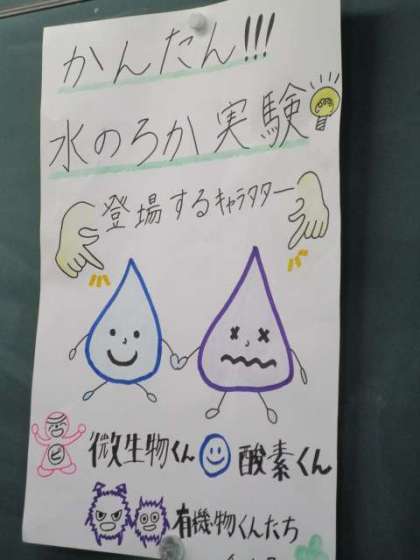 かんたん!!!
水のろか実験
登場するキャラクター
微生物くん 酸素くん
有機物くんたち